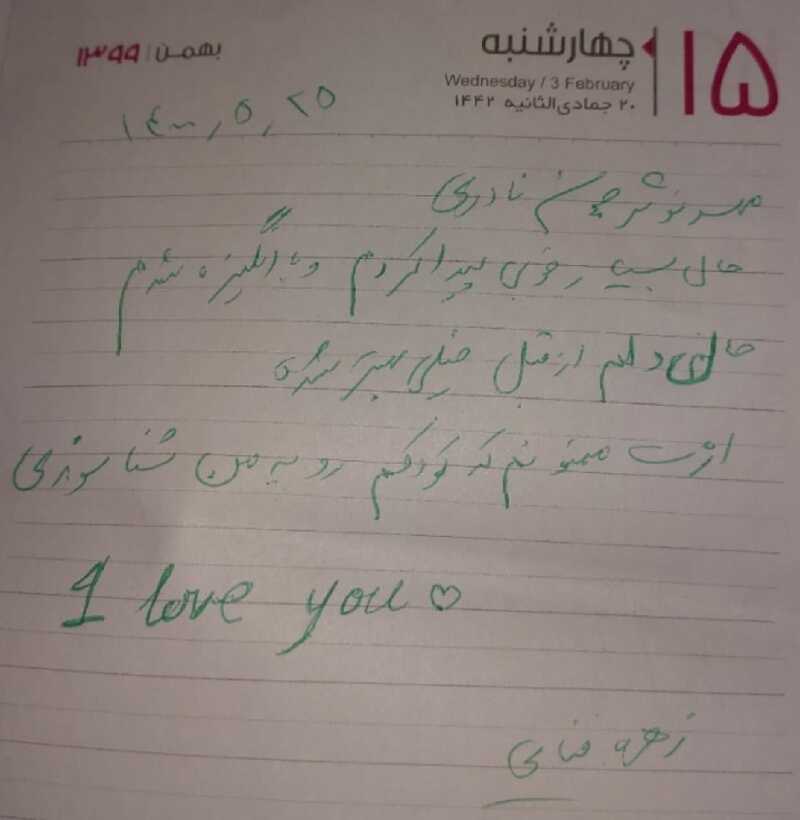 ۱۵
چهارشنبه
Wednesday / 3 February
۲۰ جمادی‌الثانیه ۱۴۴۲
بهمن | ۱۳۹۹
۱۴۰۰٫۵٫۲۵
نادری
حال بسیار خوبی پیدا کردم و با انگیزه شدم
حال دلم از قبل خیلی بهتر شده
ازت ممنونم که کودکم رو به من شناسوندی
I love you ♡
زهره فنایی